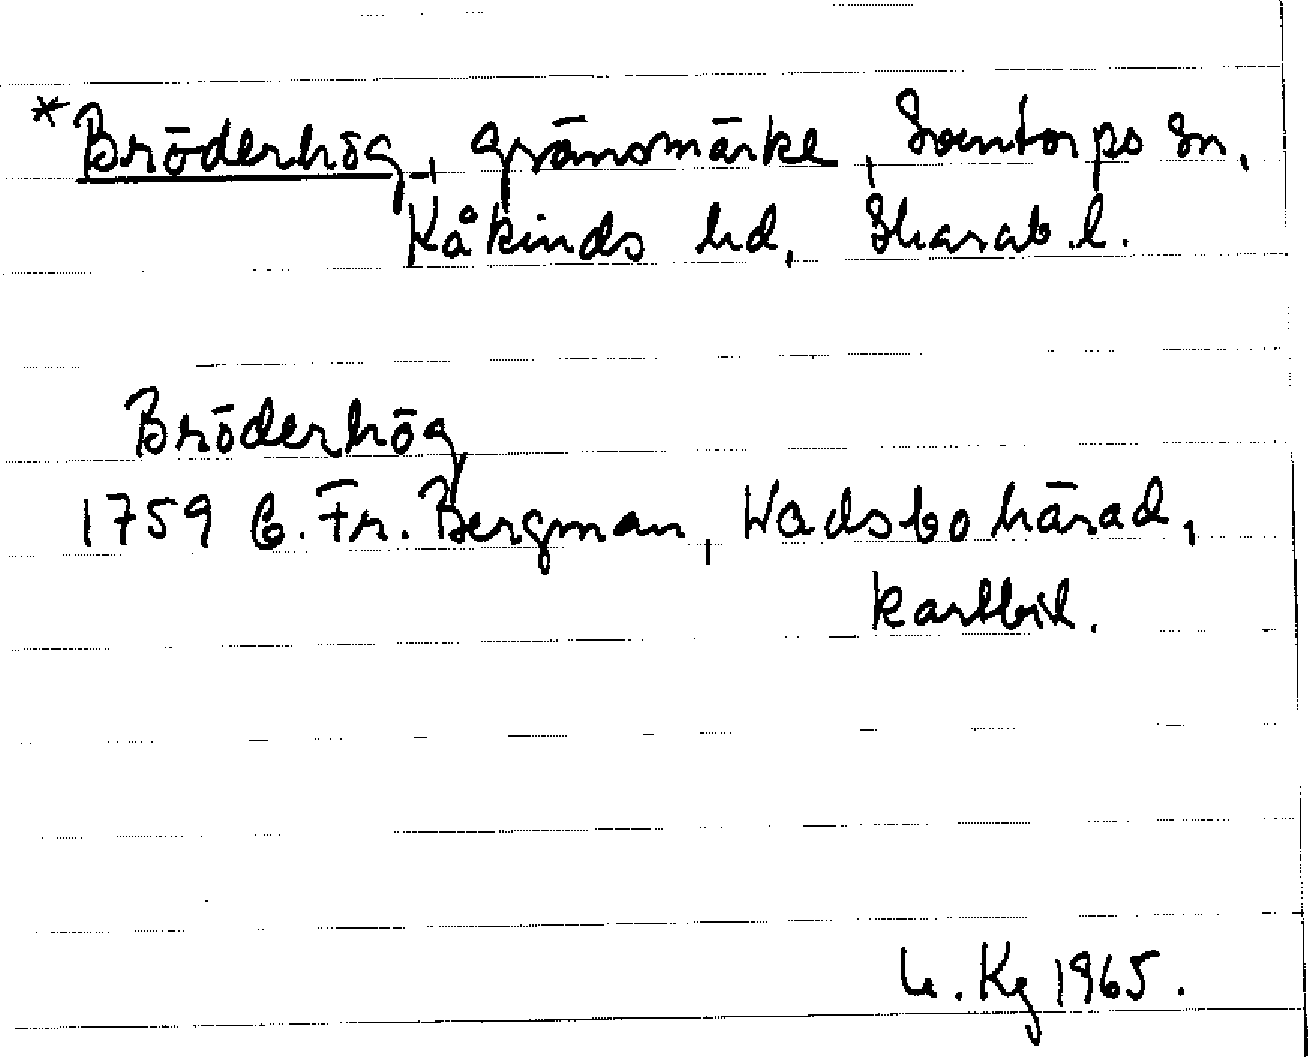 *Bröderhög, gränsmärke, Suntorps sn,
Kåkinds hd, Skarab.l.
Bröderhög
1759 C. Fr. Bergman, Wadsbo härad,
kartbil.
Kg 1965.